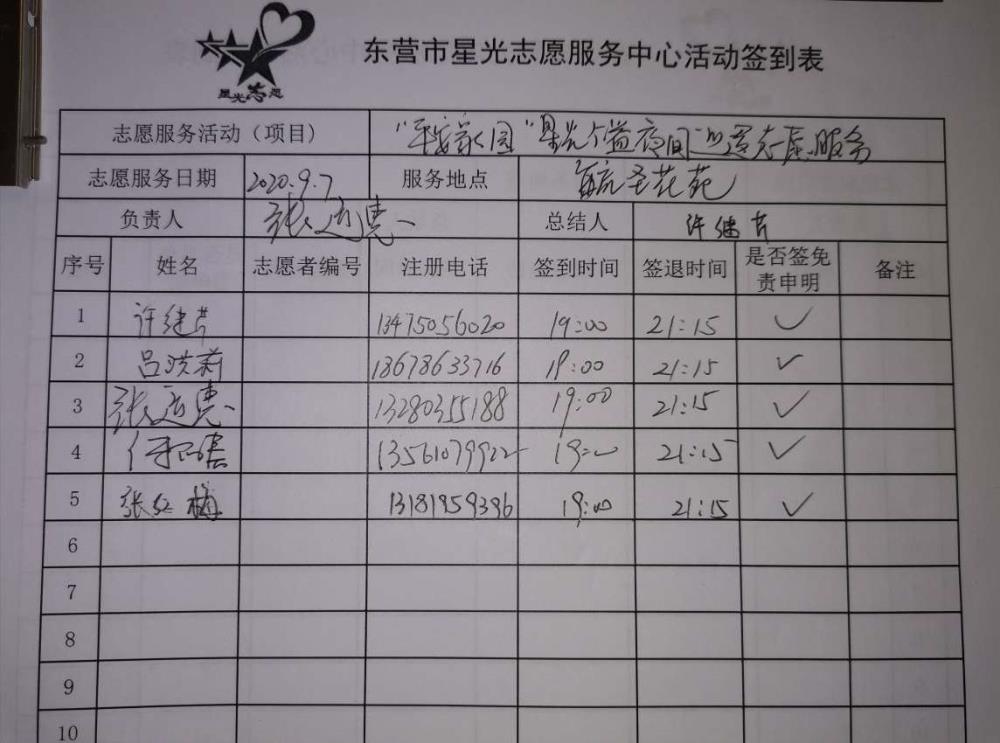 星光志愿
东营市星光志愿服务中心活动签到表
志愿服务活动（项目） "平安家园"星光公益夜间巡逻志愿服务
志愿服务日期 2020.9.7 服务地点 圣花苑
负责人 张 惠 总结人 许继芹
序号 姓名 志愿者编号 注册电话 签到时间 签退时间 是否签免责申明 备注
1 许继芹 13475056020 19:00 21:15 ✓
2 吕洪莉 18678633716 19:00 21:15 ✓
3 张 惠 13280355188 19:00 21:15 ✓
4 13561079922 19:00 21:15 ✓
5 张红梅 13181959396 19:00 21:15 ✓
6
7
8
9
10